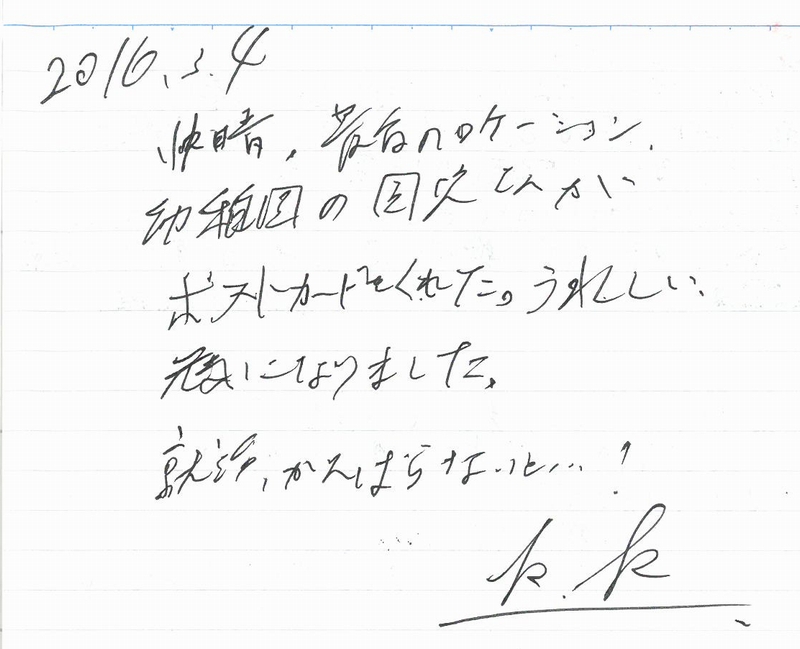 2016.3.4
快晴。最高のロケーション。
幼稚園の園児さんが
ポストカードをくれた。うれしい、
になりました。
就活、がんばらないと…!
k.k